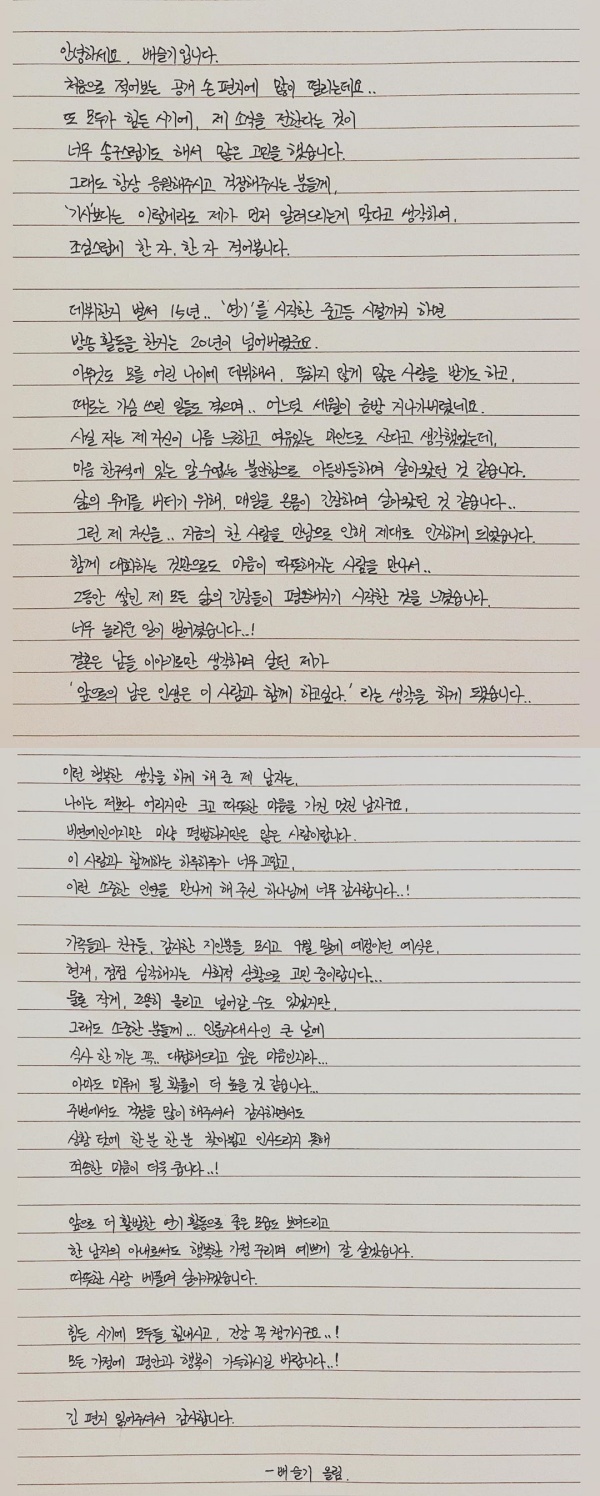 안녕하세요. 배슬기입니다.
처음으로 적어보는 공개 손편지에 많이 떨리는데요..
또 모두가 힘든 시기에, 제 소식을 전한다는 것이
너무 송구스럽기도 해서 많은 고민을 했습니다.
그래도 항상 응원해주시고 걱정해주시는 분들께,
'기사'보다는 이렇게라도 제가 먼저 알려드리는게 맞다고 생각하여,
조심스럽게 한 자, 한 자 적어봅니다.
데뷔한지 벌써 15년.. '연기'를 시작한 중고등 시절까지 하면
방송 활동을 한지는 20년이 넘어버렸군요.
아무것도 모를 어린 나이에 데뷔해서, 뜻하지 않게 많은 사랑을 받기도 하고,
때로는 가슴 쓰린 일들도 겪으며.. 어느덧 세월이 금방 지나가버렸네요.
사실 저는 제 자신이 나름 느긋하고 여유있는 마인드로 산다고 생각했었는데,
마음 한구석에 있는 알 수 없는 불안함으로 아등바등하며 살아왔던 것 같습니다.
삶의 무게를 버티기 위해, 매일을 온몸이 긴장하며 살아왔던 것 같습니다..
그런 제 자신을.. 지금의 한 사람을 만남으로 인해 제대로 인지하게 되었습니다.
함께 대화하는 것만으로도 마음이 따뜻해지는 사람을 만나서..
그동안 쌓인 제 모든 삶의 긴장들이 평온해지기 시작한 것을 느꼈습니다.
너무 놀라운 일이 벌어졌습니다..!
결혼은 남들 이야기로만 생각하며 살던 제가
'앞으로의 남은 인생은 이 사람과 함께 하고싶다.' 라는 생각을 하게 됐습니다..
이런 행복한 생각을 하게 해 준 제 남자는,
나이는 저보다 어리지만 크고 따뜻한 마음을 가진 멋진 남자구요,
비연예인이지만 마냥 평범하지만은 않은 사람이랍니다.
이 사람과 함께하는 하루하루가 너무 고맙고,
이런 소중한 인연을 만나게 해 주신 하나님께 너무 감사합니다..!
가족들과 친구들, 감사한 지인분들 모시고 9월 말에 예정이던 예식은,
현재, 점점 심각해지는 사회적 상황으로 고민 중이랍니다...
물론 작게, 조용히 올리고 넘어갈 수도 있겠지만,
그래도 소중한 분들께... 인륜지대사인 큰 날에
식사 한 끼는 꼭.. 대접해드리고 싶은 마음인지라...
아마도 미루게 될 확률이 더 높을 것 같습니다...
주변에서도 걱정을 많이 해주셔서 감사하면서도
상황 탓에 한분 한분 찾아뵙고 인사드리지 못해
죄송한 마음이 더욱 큽니다..!
앞으로 더 활발한 연기 활동으로 좋은 모습도 보여드리고
한 남자의 아내로서도 행복한 가정 꾸리며 예쁘게 잘 살겠습니다.
따뜻한 사랑 베풀며 살아가겠습니다.
힘든 시기에 모두들 힘내시고, 건강 꼭 챙기시구요..!
모든 가정에 평안과 행복이 가득하시길 바랍니다..!
긴 편지 읽어주셔서 감사합니다.
- 배슬기 올림.